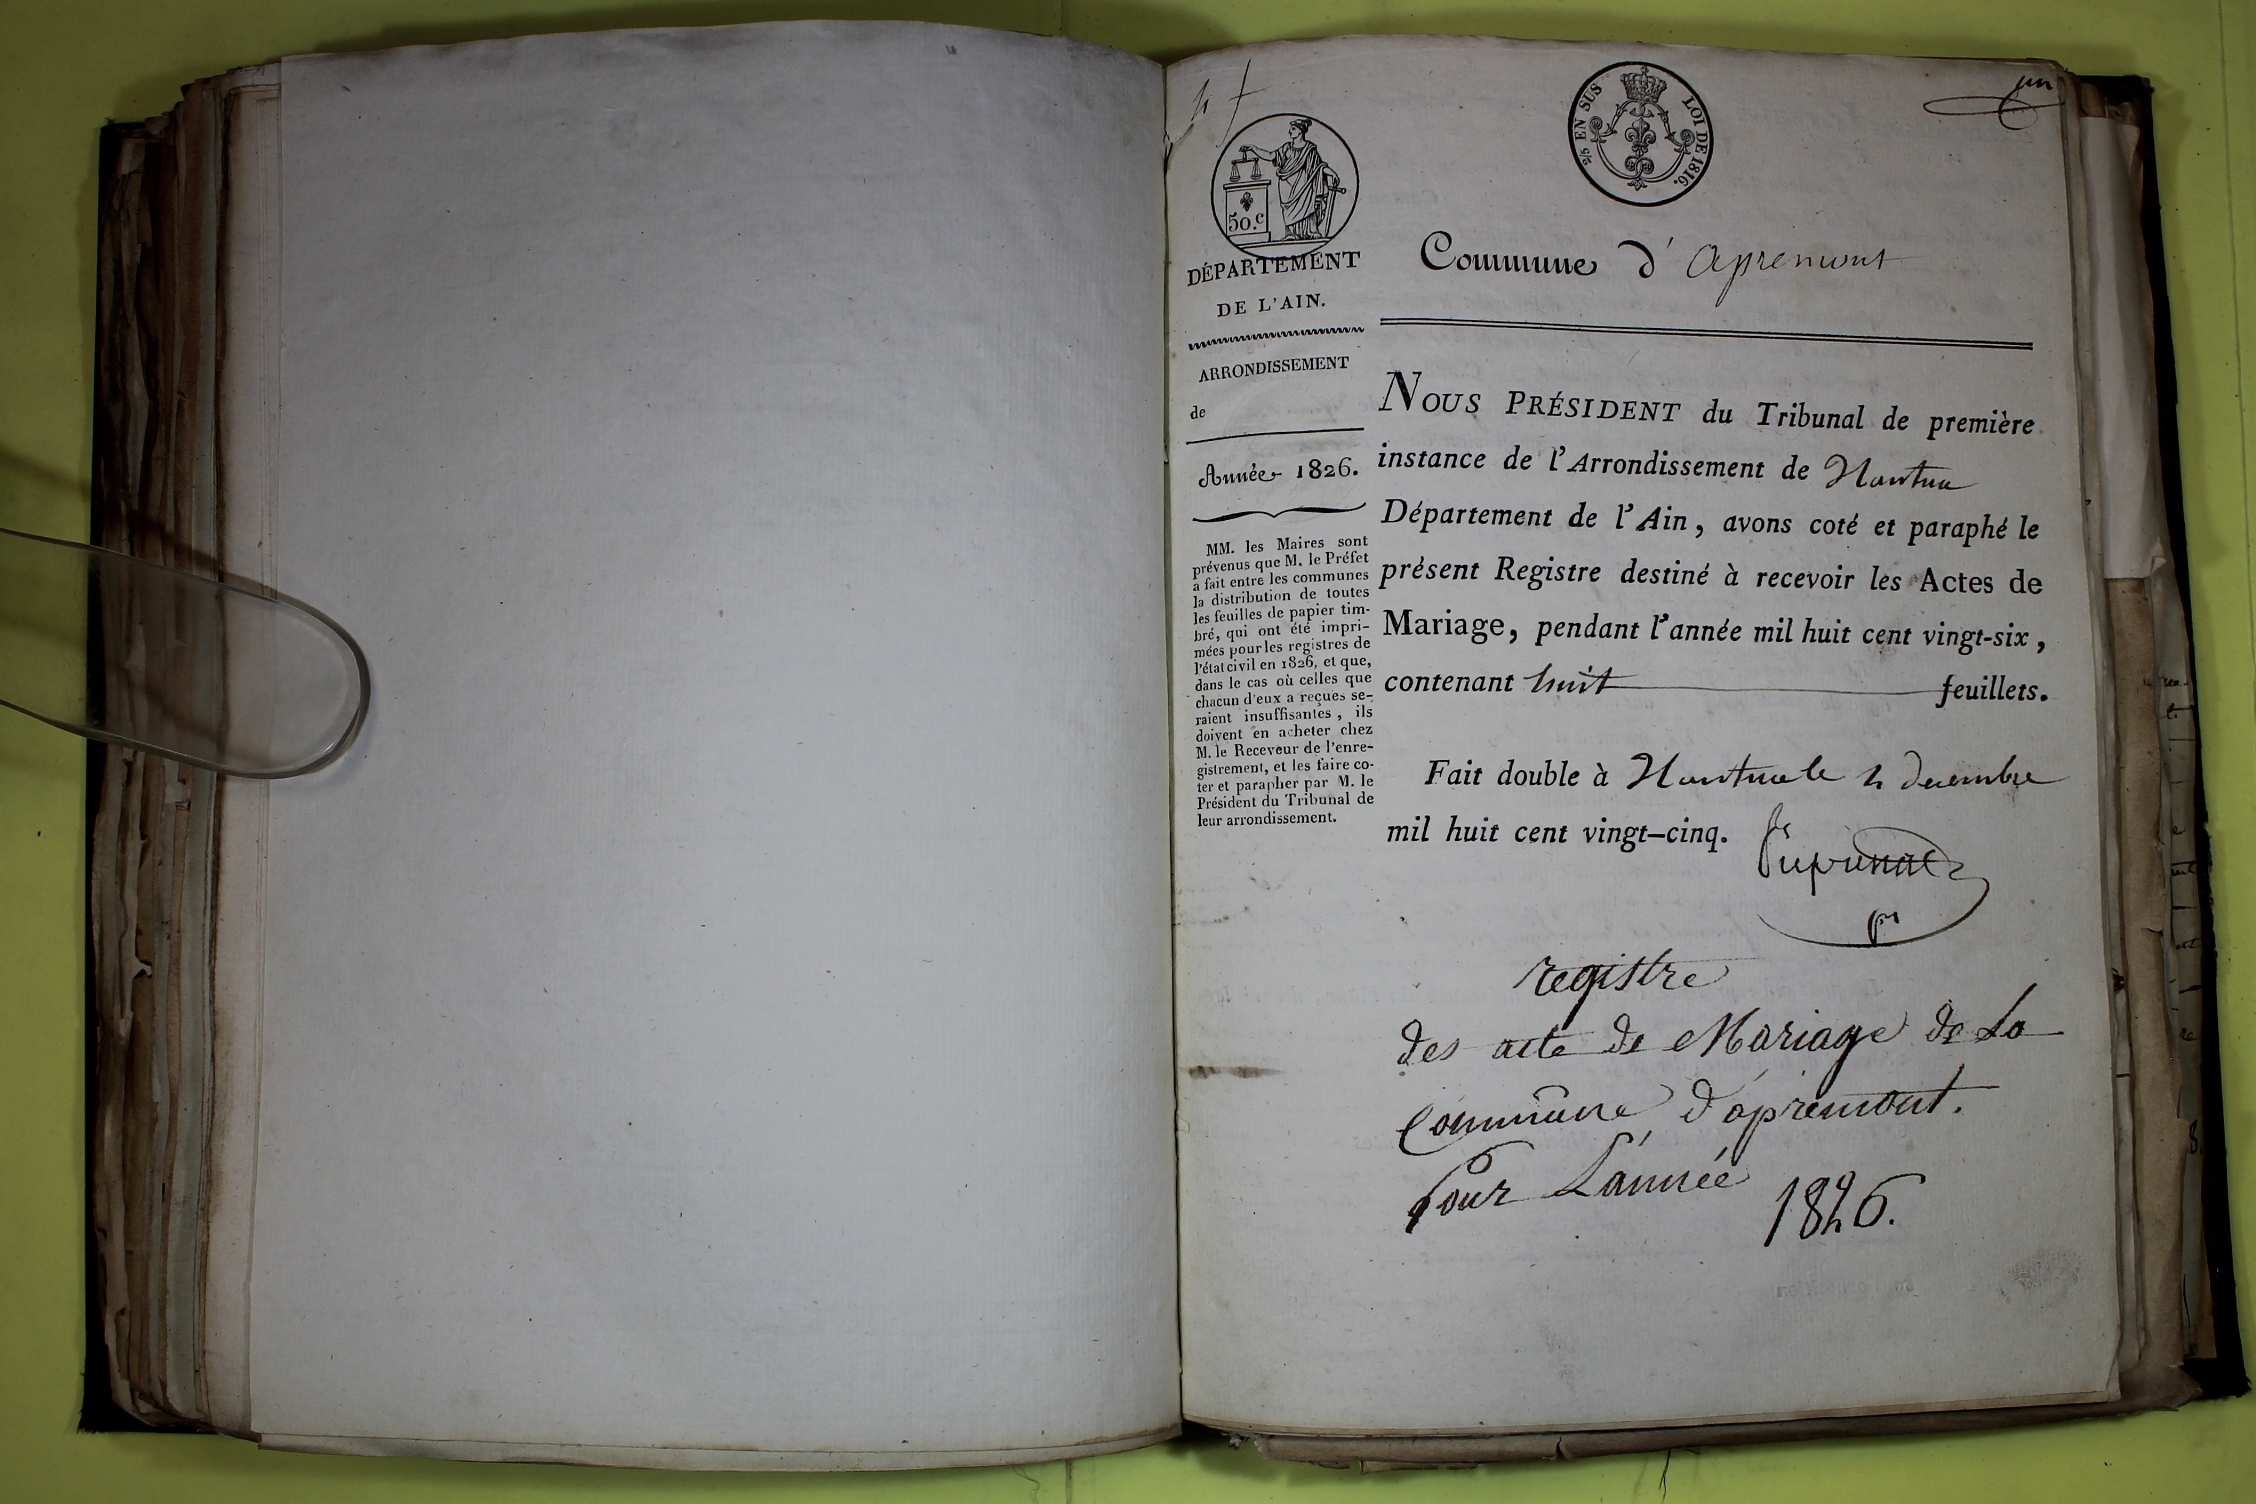 ⅖ EN SUS LOI DE 1816.
50.c
DÉPARTEMENT
DE L'AIN.
ARRONDISSEMENT
de
Année 1826.
MM. les Maires sont
prévenus que M. le Préfet
a fait entre les communes
la distribution de toutes
les feuilles de papier tim-
bré, qui ont été impri-
mées pour les registres de
l'état civil en 1826, et que,
dans le cas où celles que
chacun d'eux a reçues se-
raient insuffisantes, ils
doivent en acheter chez
M. le Receveur de l'enre-
gistrement, et les faire co-
ter et parapher par M. le
Président du Tribunal de
leur arrondissement.
Commune d'apremont
NOUS PRÉSIDENT du Tribunal de première
instance de l'Arrondissement de Nantua
Département de l'Ain, avons coté et paraphé le
présent Registre destiné à recevoir les Actes de
Mariage, pendant l'année mil huit cent vingt-six,
contenant huit feuillets.
Fait double à Nantua le decembre
mil huit cent vingt-cinq.
registre
des acte de Mariage de La
Commune d'apremont.
Pour L'année
1826.